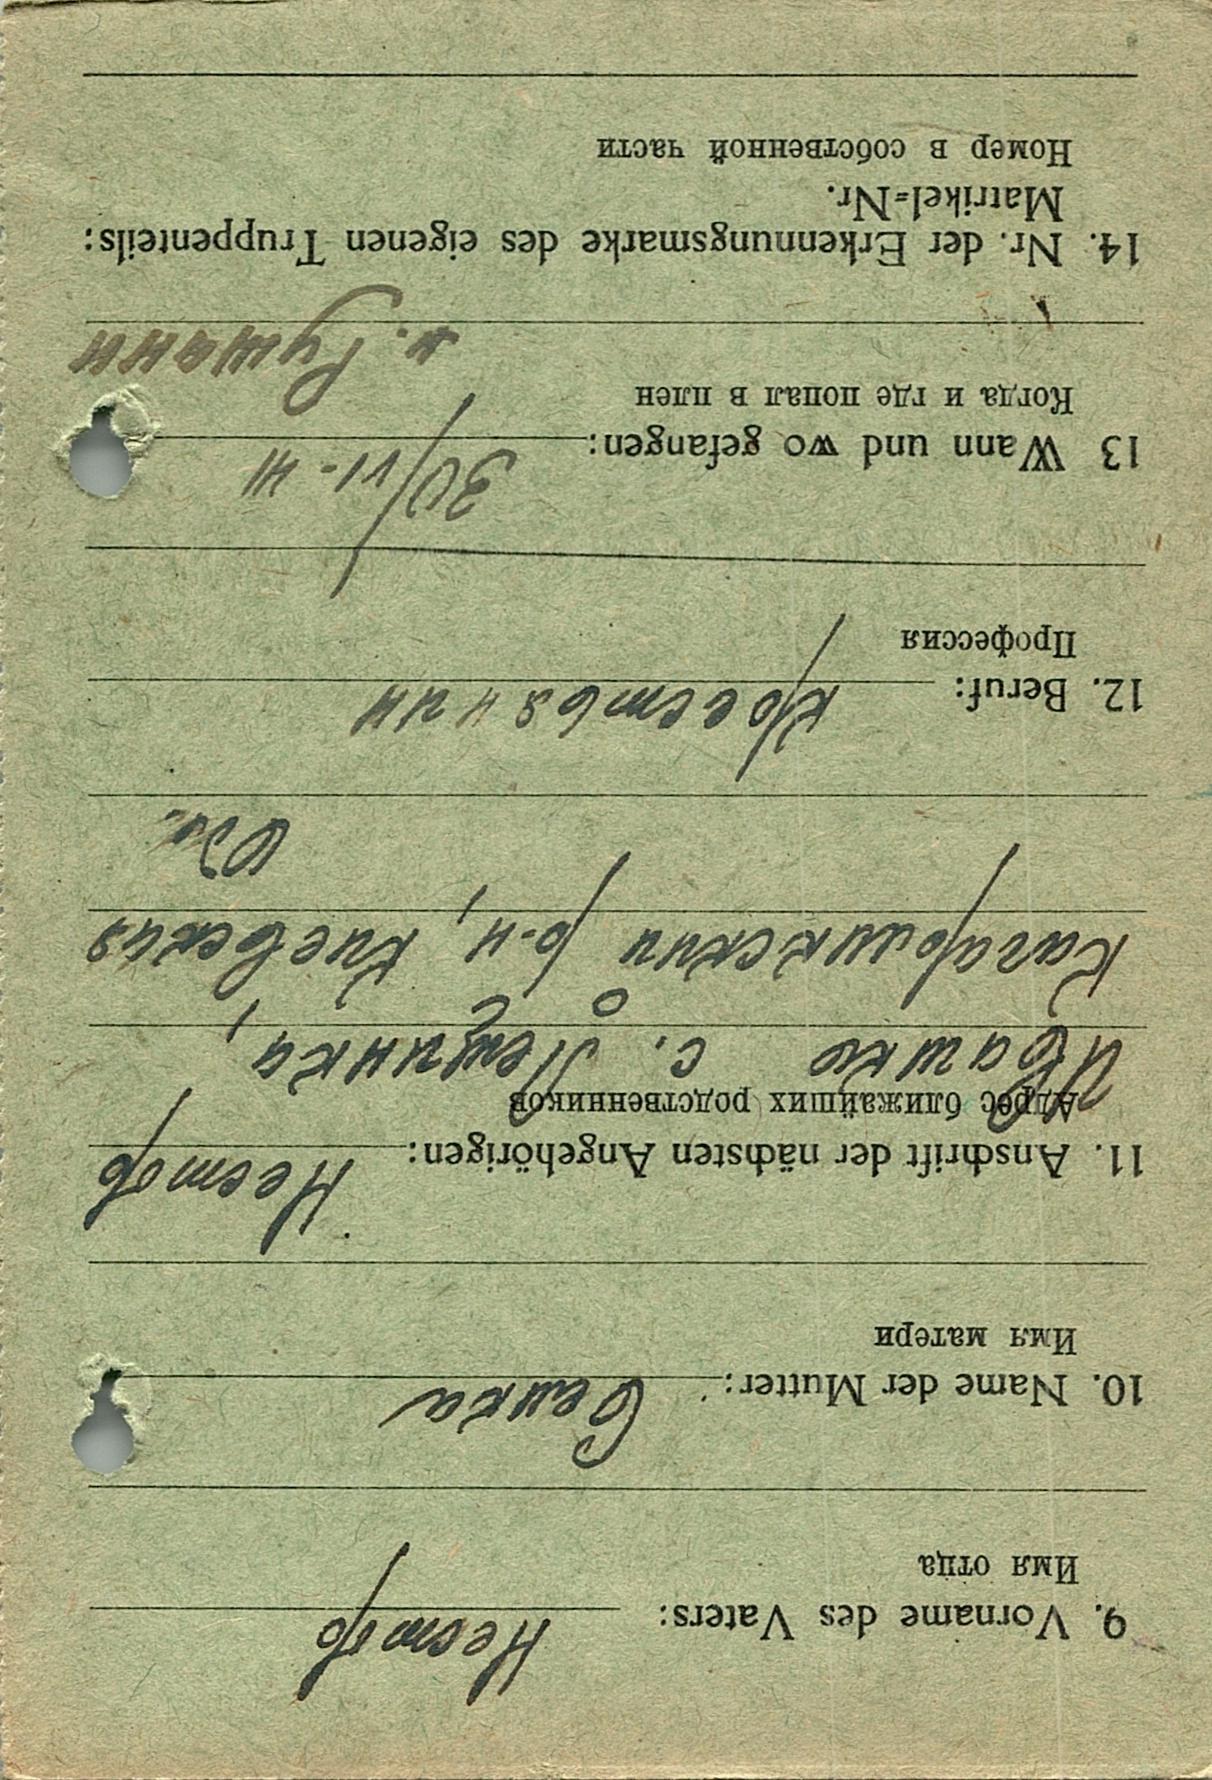 9. Vorname des Vaters: Нестор
Имя отца
10. Name der Mutter: Секла
Имя матери
11. Anschrift der nächsten Angehörigen: Нестор
Адрес ближайших родственников
Ивашко с. Лещинка,
Кагарликский р-н, Киевская
обл.
12. Beruf: крестьянин
Профессия
13 Wann und wo gefangen: 30/VI-41
Когда и где попал в плен
14. Nr. der Erkennungsmarke des eigenen Truppenteils:
Matrikel=Nr.
Номер в собственной части